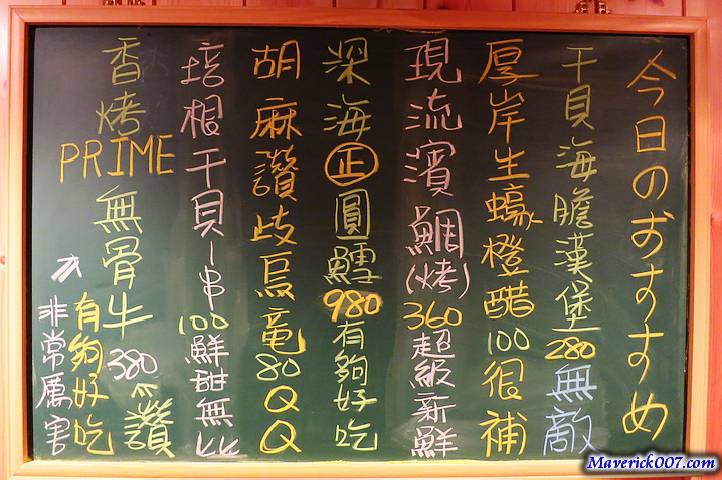 今日のおすすめ
干貝海膽漢堡280無敵
厚岸生蠔橙醋100很補
現流濱鯛(烤)360超級新鮮
深海㊣圓鱈980有夠好吃
胡麻讚歧烏竜80QQ
培根干貝一串100鮮甜無比
香烤PRIME無骨牛380←讚
有夠好吃
↗非常厲害
Maverick007.com